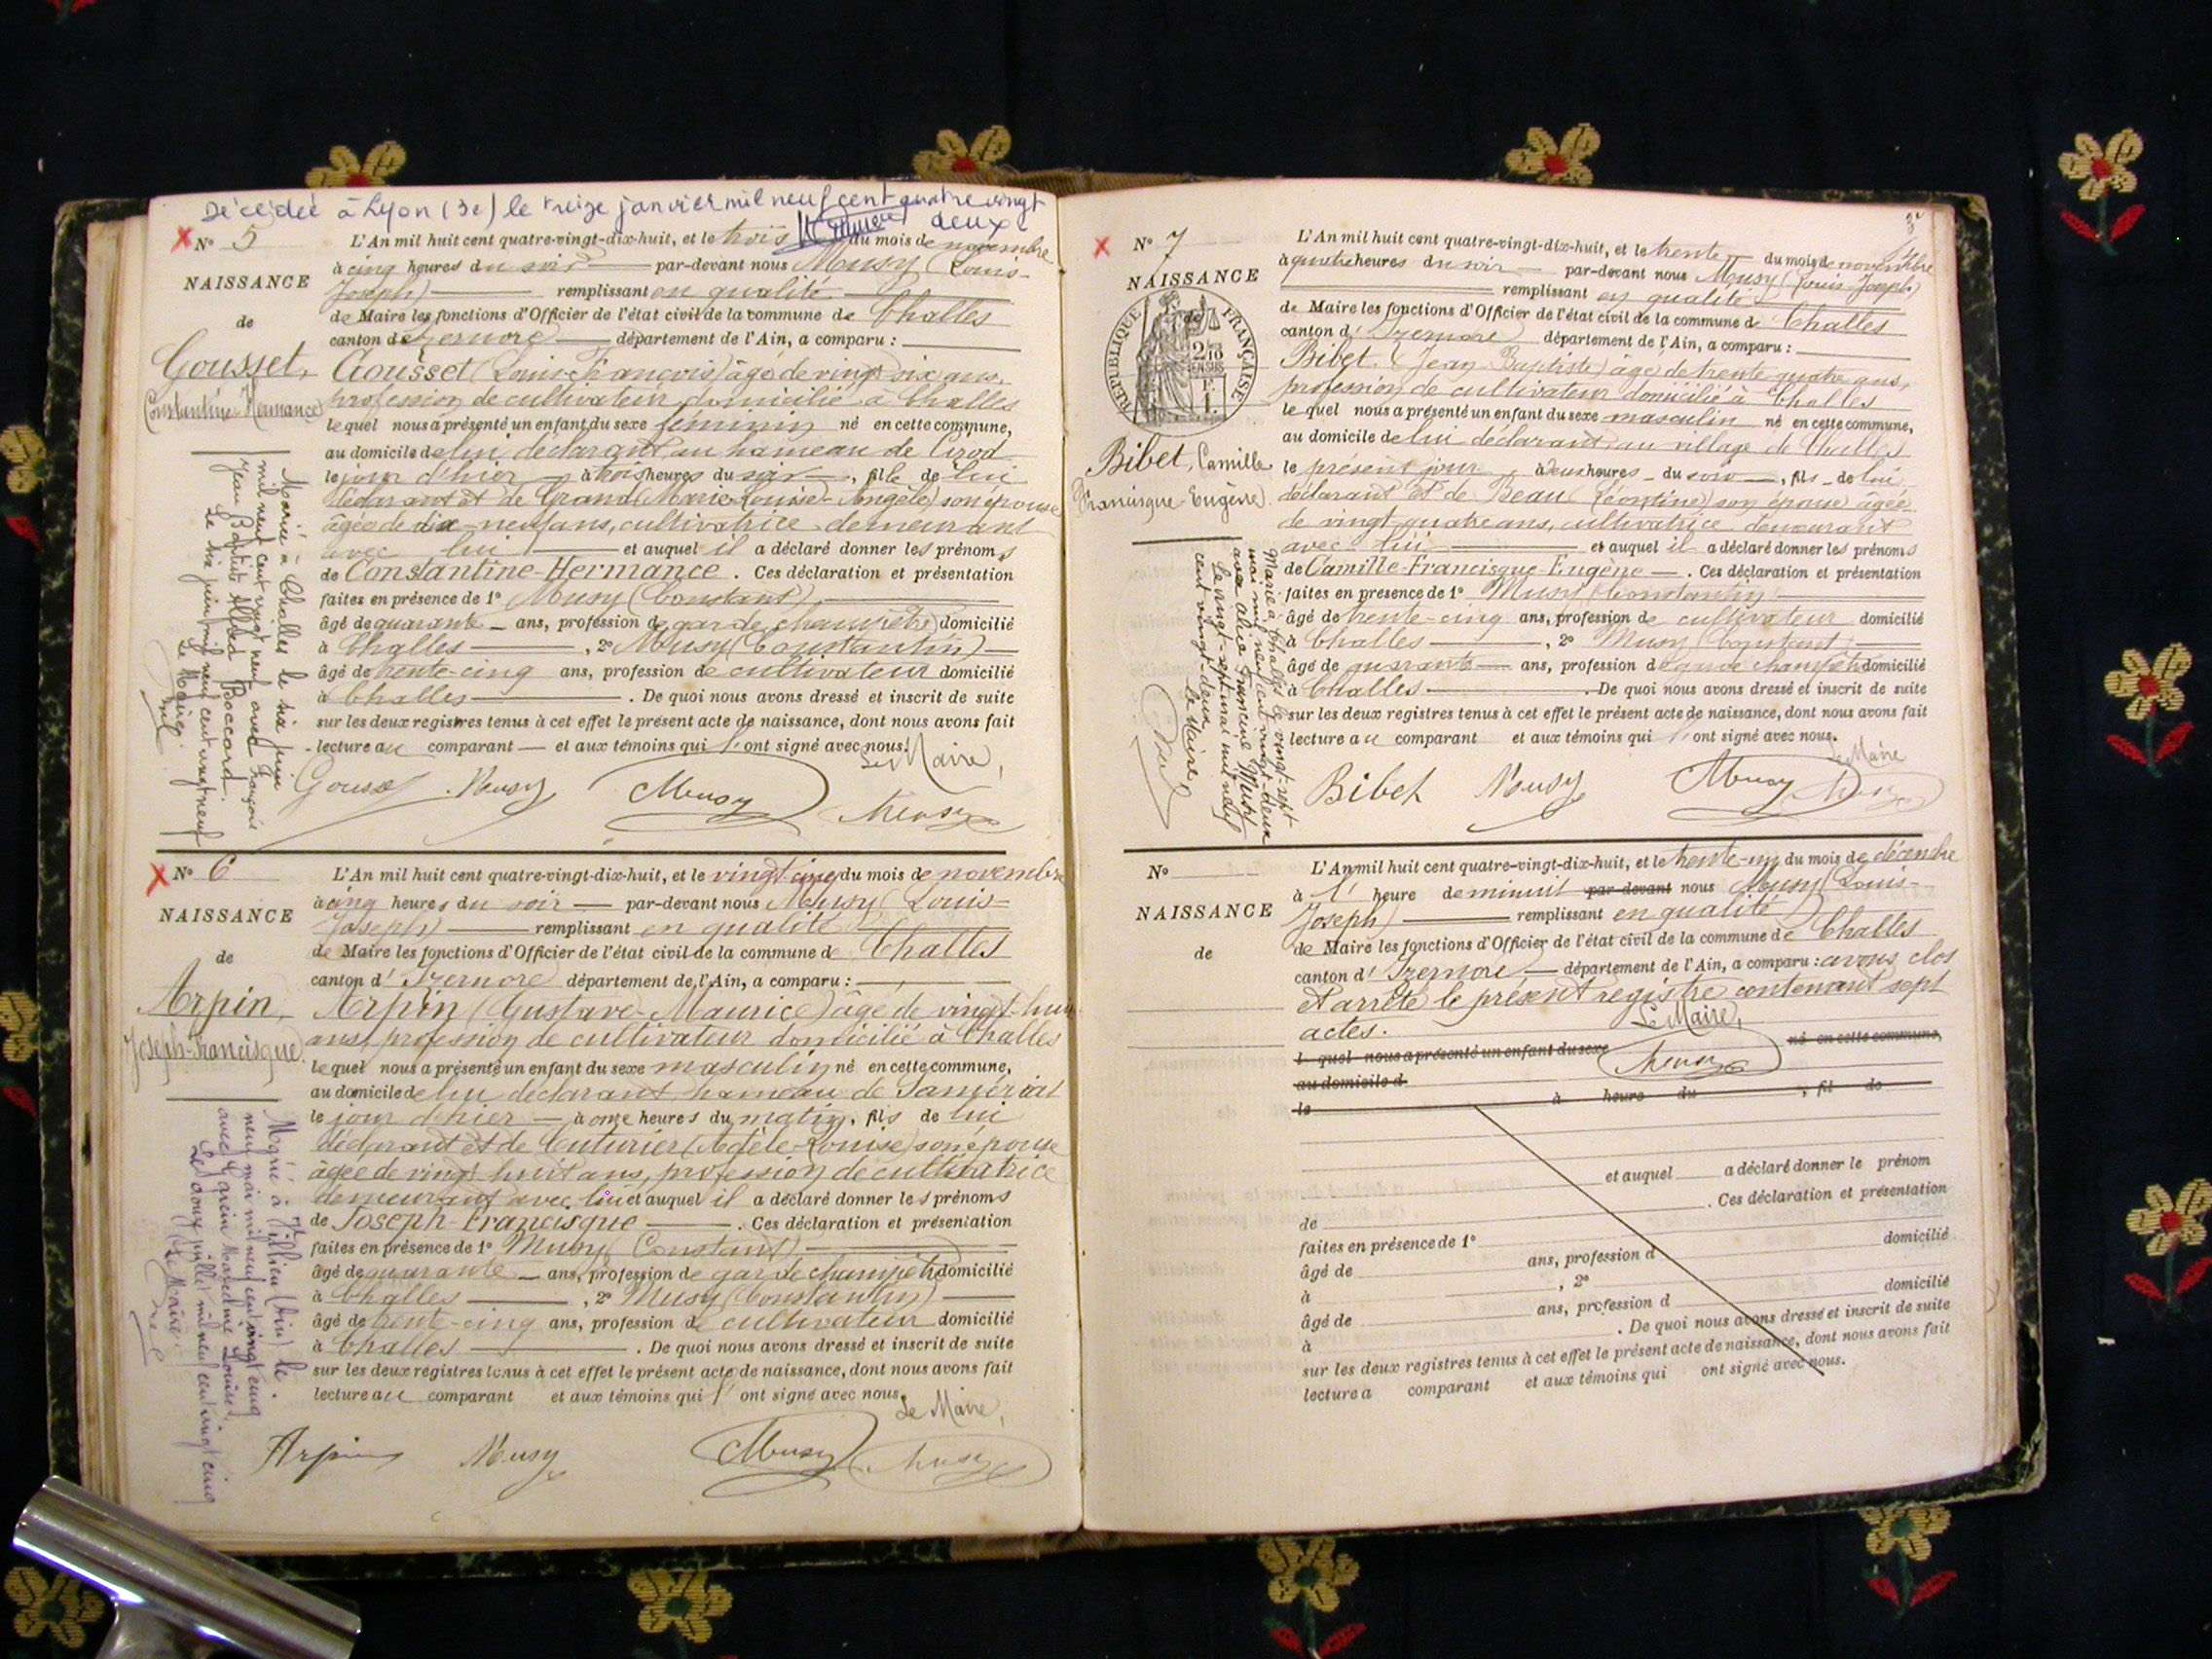 Décédée à Lyon (3e) le treize janvier mil neuf cent quatre vingt
deux
N° 5
NAISSANCE
de
Gousset,
Constantine-Hermance
L'An mil huit cent quatre-vingt-dix-huit, et le trois du mois de novembre
à cinq heures du soir par-devant nous Musy (Louis-
Joseph) remplissant en qualité
de Maire les fonctions d'Officier de l'état civil de la commune de Challes
canton d'Izernore département de l'Ain, a comparu :
Gousset (Louis-François) âgé de vingt six ans,
profession de cultivateur domicilié à Challes
lequel nous a présenté un enfant du sexe féminin né en cette commune,
au domicile de lui déclarant, au hameau de Cirod
le jour d'hier à trois heures du soir, fille de lui
déclarant et de Grand (Marie-Louise-Angèle) son épouse
âgée de dix-neuf ans, cultivatrice demeurant
avec lui et auquel il a déclaré donner les prénoms
de Constantine-Hermance. Ces déclaration et présentation
faites en présence de 1° Musy (Constant)
âgé de quarante ans, profession de garde champêtre domicilié
à Challes, 2° Musy (Constantin)
âgé de trente-cinq ans, profession de cultivateur domicilié
à Challes. De quoi nous avons dressé et inscrit de suite
sur les deux registres tenus à cet effet le présent acte de naissance, dont nous avons fait
lecture au comparant et aux témoins qui l'ont signé avec nous.
Le Maire,
Gousset Musy Musy Musy
Mariée à Challes le six juin
mil neuf cent vingt neuf avec François
Jean Baptiste Alfred Boccard.
Le six juin mil neuf cent vingt neuf
Le Maire.
N° 6
NAISSANCE
de
Arpin,
Joseph-Francisque.
L'An mil huit cent quatre-vingt-dix-huit, et le vingt-cinq du mois de novembre
à cinq heures du soir par-devant nous Musy (Louis-
Joseph) remplissant en qualité
de Maire les fonctions d'Officier de l'état civil de la commune de Challes
canton d'Izernore département de l'Ain, a comparu :
Arpin (Gustave-Maurice) âgé de vingt-huit
ans, profession de cultivateur domicilié à Challes
lequel nous a présenté un enfant du sexe masculin né en cette commune,
au domicile de lui déclarant hameau de
le jour d'hier à onze heures du matin, fils de lui
déclarant et de Cuturier (Adèle-Louise) son épouse
âgée de vingt huit ans, profession de cultivatrice
demeurant avec lui et auquel il a déclaré donner les prénoms
de Joseph-Francisque. Ces déclaration et présentation
faites en présence de 1° Musy (Constant)
âgé de quarante ans, profession de garde champêtre domicilié
à Challes, 2° Musy (Constantin)
âgé de trente-cinq ans, profession de cultivateur domicilié
à Challes. De quoi nous avons dressé et inscrit de suite
sur les deux registres tenus à cet effet le présent acte de naissance, dont nous avons fait
lecture au comparant et aux témoins qui l'ont signé avec nous.
Le Maire,
Arpin Musy Musy Musy
Marié à (Ain) le
neuf mai mil neuf cent vingt cinq
avec Marcelline Louise.
Le douze juillet mil neuf cent vingt cinq
Le Maire.
3e
N° 7
NAISSANCE
de
RÉPUBLIQUE FRANÇAISE
2/10 EN SUS
Bibet, Camille
Francisque-Eugène.
L'An mil huit cent quatre-vingt-dix-huit, et le trente du mois de novembre
à quatre heures du soir par-devant nous Musy (Louis-Joseph)
remplissant en qualité
de Maire les fonctions d'Officier de l'état civil de la commune de Challes
canton d'Izernore département de l'Ain, a comparu :
Bibet (Jean-Baptiste) âgé de trente-quatre ans,
profession de cultivateur domicilié à Challes
lequel nous a présenté un enfant du sexe masculin né en cette commune,
au domicile de lui déclarant, au village de Challes
le présent jour à deux heures du soir, fils de lui
déclarant et de Beau (Léontine) son épouse âgée
de vingt quatre ans, cultivatrice demeurant
avec lui et auquel il a déclaré donner les prénoms
de Camille-Francisque-Eugène. Ces déclaration et présentation
faites en présence de 1° Musy (Constantin)
âgé de trente-cinq ans, profession de cultivateur domicilié
à Challes, 2° Musy (Constant)
âgé de quarante ans, profession de garde champêtre domicilié
à Challes. De quoi nous avons dressé et inscrit de suite
sur les deux registres tenus à cet effet le présent acte de naissance, dont nous avons fait
lecture au comparant et aux témoins qui l'ont signé avec nous.
Le Maire
Bibet Musy Musy Musy
Marié à Challes le vingt-sept
mai mil neuf cent vingt-deux
avec Alice Francine Musy
Le vingt-sept mai mil neuf
cent vingt-deux
Le Maire,
N°
NAISSANCE
de
L'An mil huit cent quatre-vingt-dix-huit, et le trente-un du mois de décembre
à l' heure de minuit par-devant nous Musy (Louis-
Joseph) remplissant en qualité
de Maire les fonctions d'Officier de l'état civil de la commune de Challes
canton d'Izernore département de l'Ain, a comparu : avons clos
et arrêté le présent registre contenant sept
actes.
Le Maire,
Musy
l quel nous a présenté un enfant du sexe né en cette commune,
au domicile d
le à heure du , fil de
et auquel a déclaré donner le prénom
de . Ces déclaration et présentation
faites en présence de 1°
âgé de ans, profession d domicilié
à , 2°
âgé de ans, profession d domicilié
à . De quoi nous avons dressé et inscrit de suite
sur les deux registres tenus à cet effet le présent acte de naissance, dont nous avons fait
lecture a comparant et aux témoins qui ont signé avec nous.